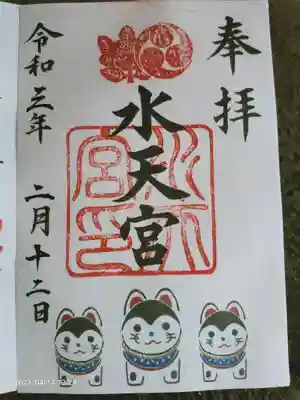 奉拝
水天宮
水天宮印
令和三年 二月十二日
2021/04/14 12:24